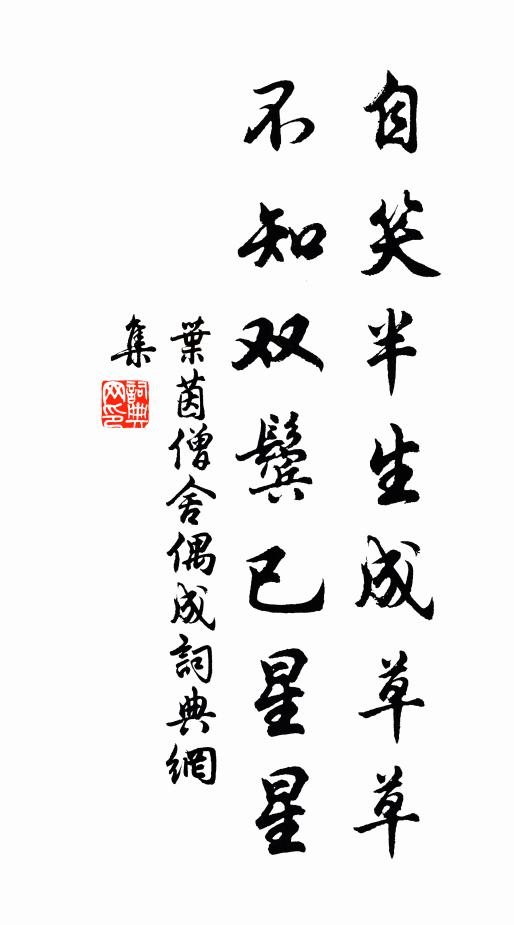 自笑半生成草草
不知双鬓已星星
葉茵僧舍偶成詞典網
集
詞典
网印